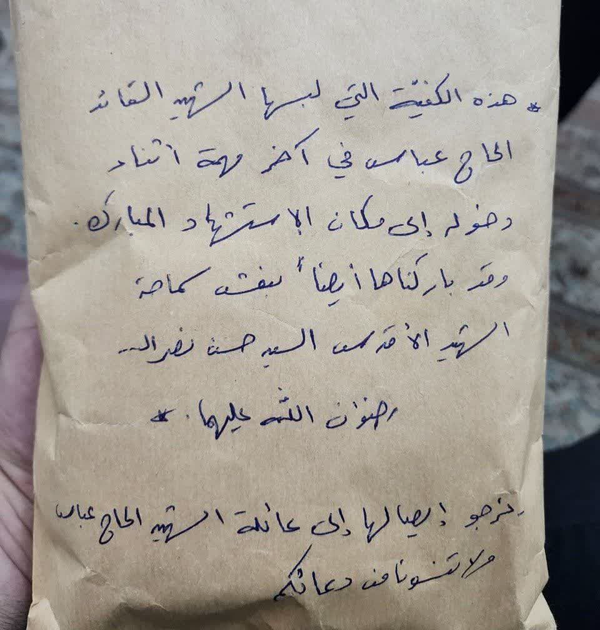 * هذه الكفيّة التي لبسها الشهيد القائد
الحاج عباس في آخر مهمة أثناء
دخوله إلى مكان الإستشهاد المبارك.
وقد باركناها أيضاً بنعش سماحة
الشهيد الأقدس السيد حسن نصرالله
رضوان الله عليهما. *
نرجو إيصالها إلى عائلة الشهيد الحاج عباس
ولا تنسونا من دعائكم